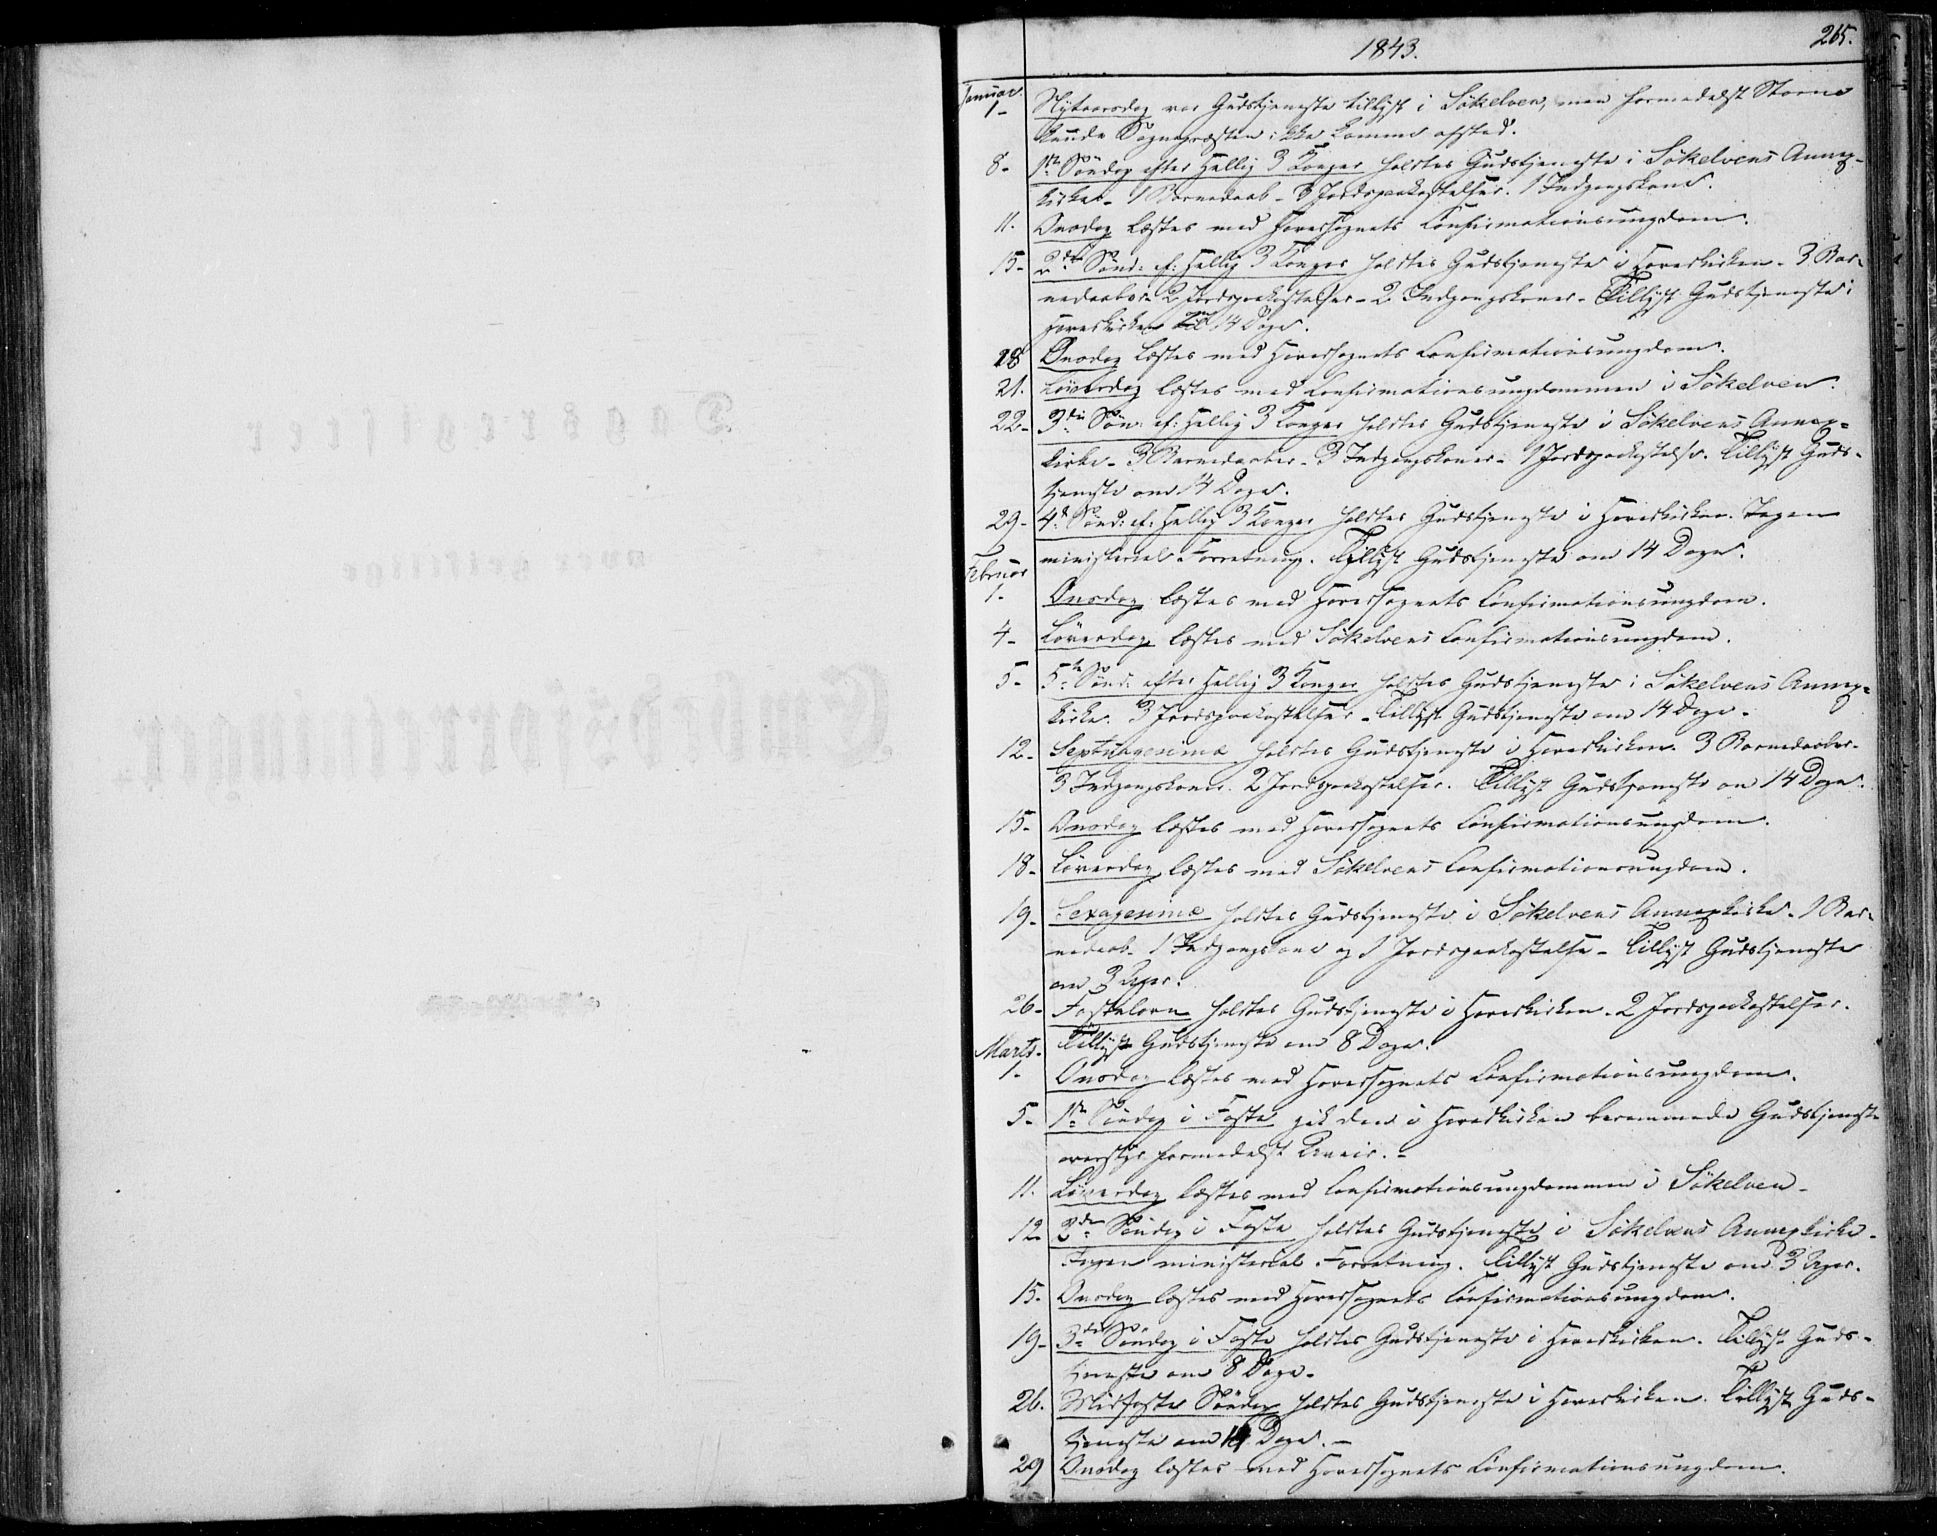 1843.
265.
Januar
1- Nytaarsdag var Gudstjeneste tillyst i Sökelven, men formedelst Storm
kunde Sognepræsten ikke komme afsted.
8- 1ste Söndag efter Hellig 3 Konger holdtes Gudstjeneste i Sökelvens Annex-
kirke- 1 Barnedaab- 3 Jordspaakastelser. 1 Indgangskone.
11. Onsdag læstes med Hovedsognets Confirmationsungdom.
15- 2den Sönd: ef: Hellig 3 Konger holdtes Gudstjeneste i Hovedkirken- 3 Bar-
nedaab- 2 Jordspaakastelser- 2 Indgangskoner- Tillyst Gudstjeneste i
Hovedkirken om 14 Dage.
18 Onsdag læstes med Hovedsognets Confirmationsungdom.
21. Löverdag læstes med Confirmationsungdommen i Sökelven.
22- 3die Sön: ef: Hellig 3 Konger holdtes Gudstjeneste i Sökelvens Annex-
kirke- 3 Barnedaaber- 3 Indgangskoner- 1 Jordspaakastelse. Tillyst Guds-
tjeneste om 14 Dage.
29- 4de Sönd: ef: Hellig 3 Konger holdtes Gudstjeneste i Hovedkirken. Ingen
ministerial Forretning. Tillyst Gudstjeneste om 14 Dage.
Februar
1- Onsdag læstes med Hovedsognets Confirmationsungdom.
4- Löverdag læstes med Sökelvens Confirmationsungdom.
5- 5te Sönd: efter Hellig 3 Konger holdtes Gudstjeneste i Sökelvens Annex-
kirke. 3 Jordspaakastelser- Tillyst Gudstjeneste om 14 Dage-
12- Septuagesimæ holdtes Gudstjeneste i Hovedkirken. 3 Barnedaaber-
3 Indgangskoner. 2 Jordspaakastelser. Tillyst Gudstjeneste om 14 Dage.
15- Onsdag læstes med Hovedsognets Confirmationsungdom.
18- Löverdag læstes med Sökelvens Confirmationsungdom.
19- Sexagesimæ holdtes Gudstjeneste i Sökelvens Annexkirke- 1 Bar-
nedaab- 1 Indgangskone og 1 Jordspaakastelse- Tillyst Gudstjeneste
om 3 Uger.
26- Fastelavn holdtes Gudstjeneste i Hovedkirken. 2 Jordspaakastelser.
Tillyst Gudstjeneste om 8 Dage.
Marts-
1- Onsdag læstes med Hovedsognets Confirmationsungdom.
5- 1ste Söndag i Faste gik den i Hovedkirken berammede Gudstjeneste
overstyr formedelst Uveir.-
11. Löverdag læstes med Confirmationsungdommen i Sökelven-
12- 2den Söndag i Faste holdtes Gudstjeneste i Sökelvens Annexkirke-
Ingen ministerial Forretning. Tillyst Gudstjeneste om 3 Uger.
15. Onsdag læstes med Hovedsognets Confirmationsungdom.
19- 3die Söndag i Faste holdtes Gudstjeneste i Hovedkirken. Tillyst Guds-
tjeneste om 8 Dage-
26. Midfaste Söndag holdtes Gudstjeneste i Hovedkirken. Tillyst Guds-
tjeneste om 14 Dage.-
29 Onsdag læstes med Hovedsognets Confirmationsungdom.